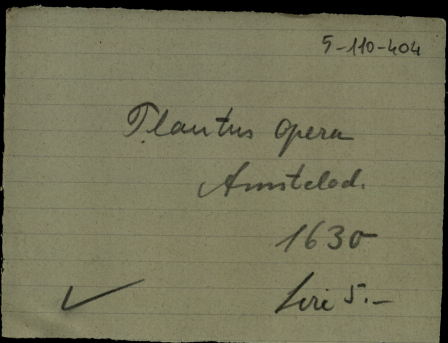 5-110-404
Plautus Opera
Amstelod.
1630
Livi 5.-